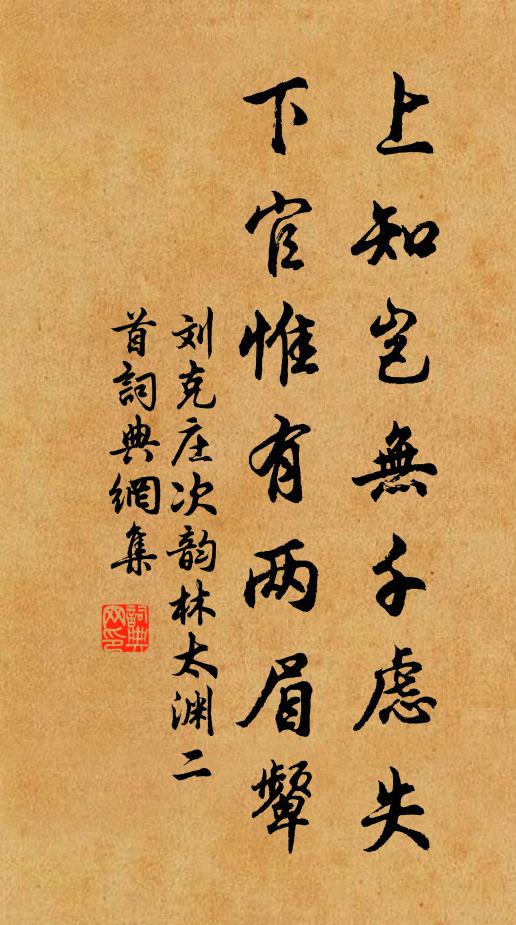 上知岂無千慮失
下官惟有两眉顰
刘克庄次韵林太渊二
首詞典網集
詞典網印